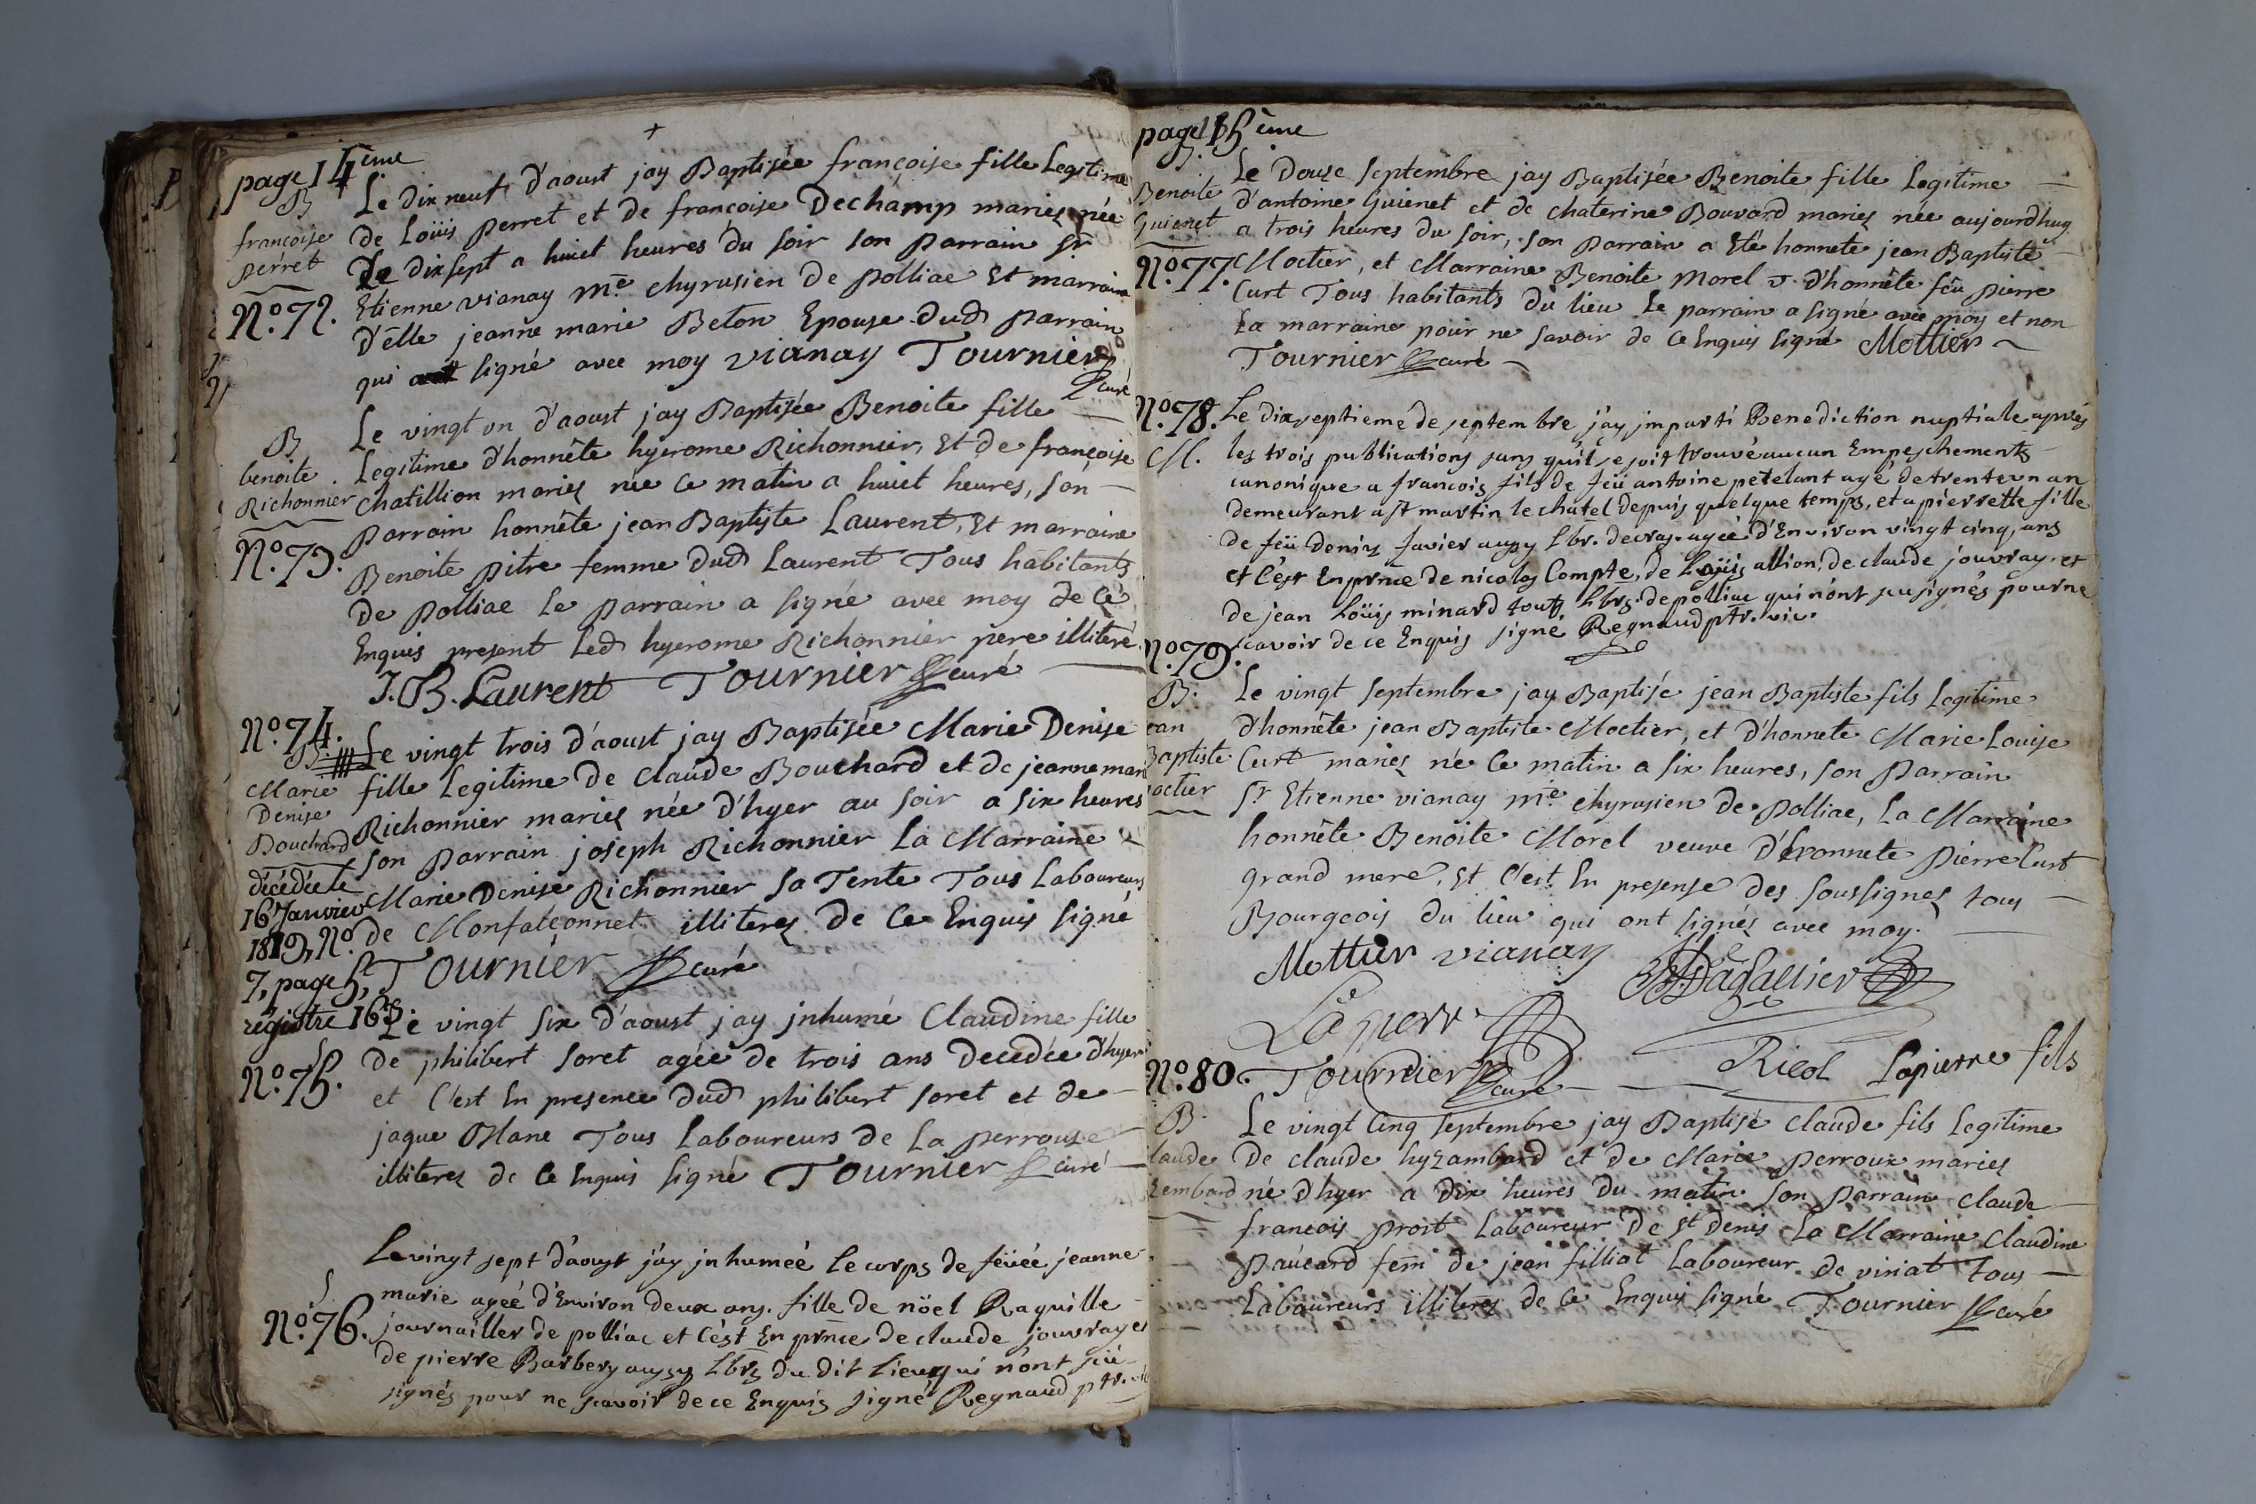 page 14ème
B
françoise
perret
N.o 72.
Le dix neuf d'aoust jay Baptisée françoise fille Legitime
de Loüis perret et de françoise Dechamp mariez née
Le dix sept a huict heures du soir son parrain Sr
Etienne vianay me chyrusien de polliac Et marraine
d'elle jeanne marie Beton Epouse dud parrain
qui ont signé avec moy vianay Tournier
curé
B
benoite
Richonnier
N.o 73.
Le vingt un d'aoust jay Baptisée Benoite fille
Legitime d'honnête hyerome Richonnier, Et de françoise
chatillion mariez née ce matin a huict heures, son
parrain honnête jean Baptiste Laurent, Et marraine
Benoite pitre femme dud Laurent Tous habitants
de polliac Le parrain a signé avec moy de ce
Enquis present Led hyerome Richonnier pere illiteré
J.B. Laurent Tournier curé
N.o 74.
B.
Marie
Denise
Bouchard
décédée le
16 Janvier
1813, N.o
7, page 5,
registre 16e
Le vingt trois d'aoust jay Baptisée Marie Denise
fille Legitime de claude Bouchard et de jeanne mari
Richonnier mariez née d'hyer au soir a six heures
son parrain joseph Richonnier La Marraine
Marie Denise Richonnier sa Tente Tous Laboureurs
de Monfalconnet illiterez de ce Enquis signé
Tournier curé
S.
N.o 75.
Le vingt six d'aoust jay jnhumé Claudine fille
de philibert soret agée de trois ans decedée d'hyer
et c'est En presence dud philibert soret et de
jaque Blanc Tous Laboureurs de La perrouse
illiterez de ce Enquis signé Tournier curé
S.
N.o 76.
Le vingt sept d'aoust j'ay jnhumeé Le corps de feüée jeanne
marie ageé d'Environ deux ans. fille de nöel Raquille
journailler de polliac et c'est En prnce de claude jouvray et
de pierre Barbery aussy Lbrs du dit Lieu qui n'ont sçü
signés pour ne sçavoir de ce Enquis signé Regnaud ptr. vic
page 15ème
B.
Benoite
Guienet
N.o 77.
Le Douze septembre jay Baptisée Benoite fille Legitime
d'antoine Guienet et de chaterine Bouvard mariez née aujourdhuy
a trois heures du soir, son parrain a Eté honnete jean Baptiste
Moctier, et Marraine Benoite Morel v. d'honnête feu pierre
Curt Tous habitants du lieu Le parrain a signé avec moy et non
La marraine pour ne savoir de ce Enquis signé Mottier
Tournier curé
N.o 78.
M.
Le dix septieme de septembre j'ay jmparti Benediction nuptiale aprés
les trois publications sans qu'il se soit trouvé aucun Empeschements
canonique a francois fils de feü antoine petelant agé de trente un an
demeurant a st martin le chatel depuis quelque temps, et a pierrette fille
de feü deniz favier aussy Lbr. agée d'Environ vingt cinq, ans
et c'est En prnce de nicolas Compte, de Loüis allion, de claude jouvray, et
de jean Loüis minard tous Lbrs. de polliac qui n'ont su signés pour ne
sçavoir de ce Enquis signé Regnaud ptr. vic.
N.o 79.
B.
ean
Baptiste
octier
Le vingt septembre jay Baptisé jean Baptiste fils Legitime
d'honnête jean Baptiste Moctier, et d'honnete Marie Louise
Curt mariez né ce matin a six heures, son parrain
Sr Etienne vianay me chyrusien de polliac, La Marraine
honnête Benoite Morel veuve d'honnete pierre Curt
grand mere, Et c'est En presense des soussignez tous
Bourgeois du lieu qui ont signés avec moy.
Mottier vianay Dagallier
Lapierr
Tournier curé Ricol Lapierre fils
N.o 80.
B.
laude
zembard
Le vingt Cinq septembre jay Baptisé claude fils Legitime
De claude hyzambard et de Marie perroux mariez
né d'hyer a dix heures du matin son parrain claude
francois prost Laboureur de st denis La Marraine Claudine
paucard fem de jean filliat Laboureur de viriat tous
Laboureurs illiterez de ce Enquis signé Tournier curé